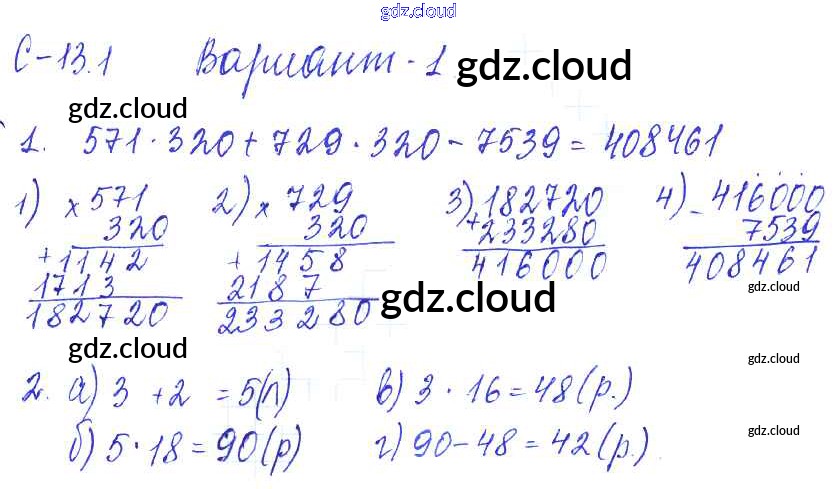 gdz.cloud
С-13.1 Вариант-1 gdz.cloud
gdz.cloud
1. 571·320+729·320-7539=408461
1) × 571 2) × 729 3) 182720 4) - 416000
320 320 + 233280 7539
+1142 + 1458 416000 408461
1713 2187 gdz.cloud gdz.cloud
182720 233280
gdz.cloud gdz.cloud
2. а) 3 + 2 = 5(л) в) 3 · 16 = 48(р.)
б) 5·18=90(р) г) 90-48=42(р.) gdz.cloud